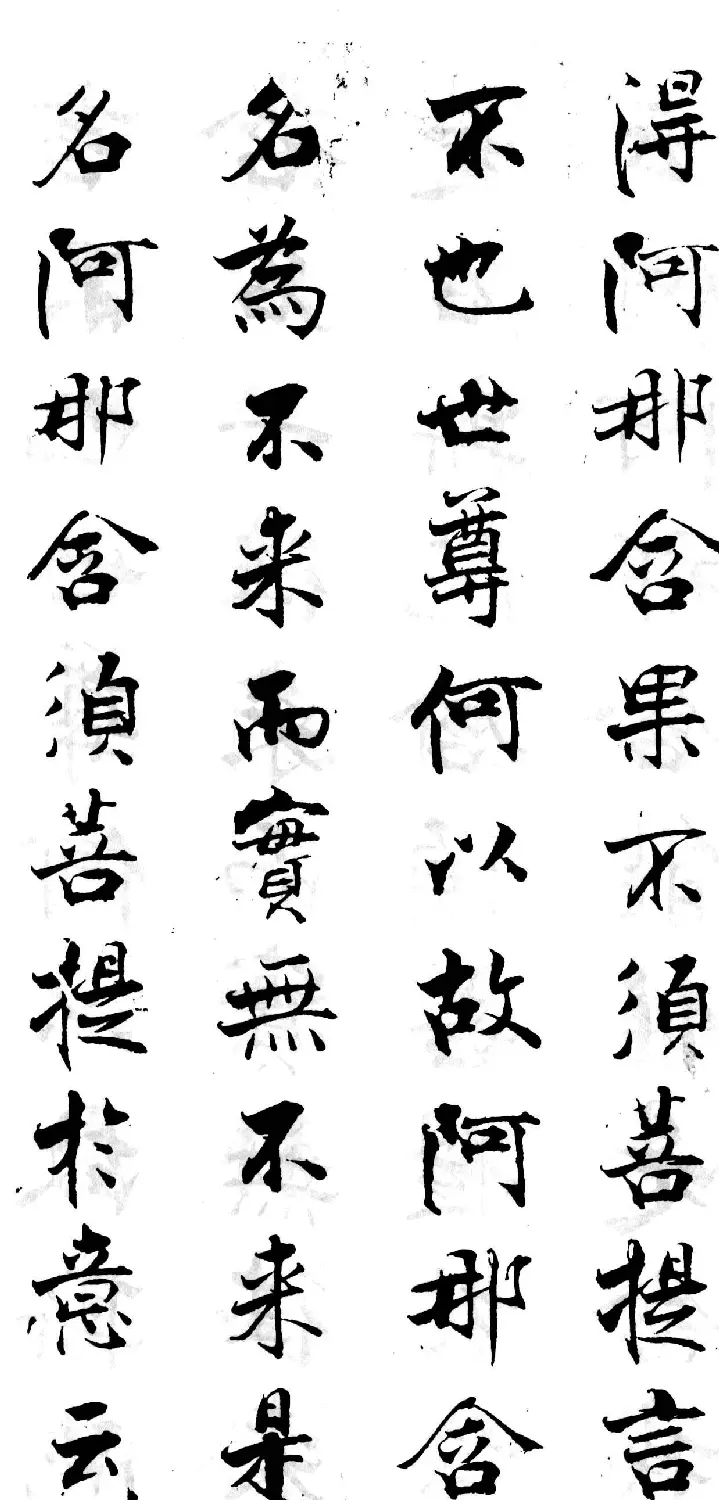 得阿那含果不須菩提言
不也世尊何以故阿那含
名為不来而實無不来是
名阿那含須菩提於意云